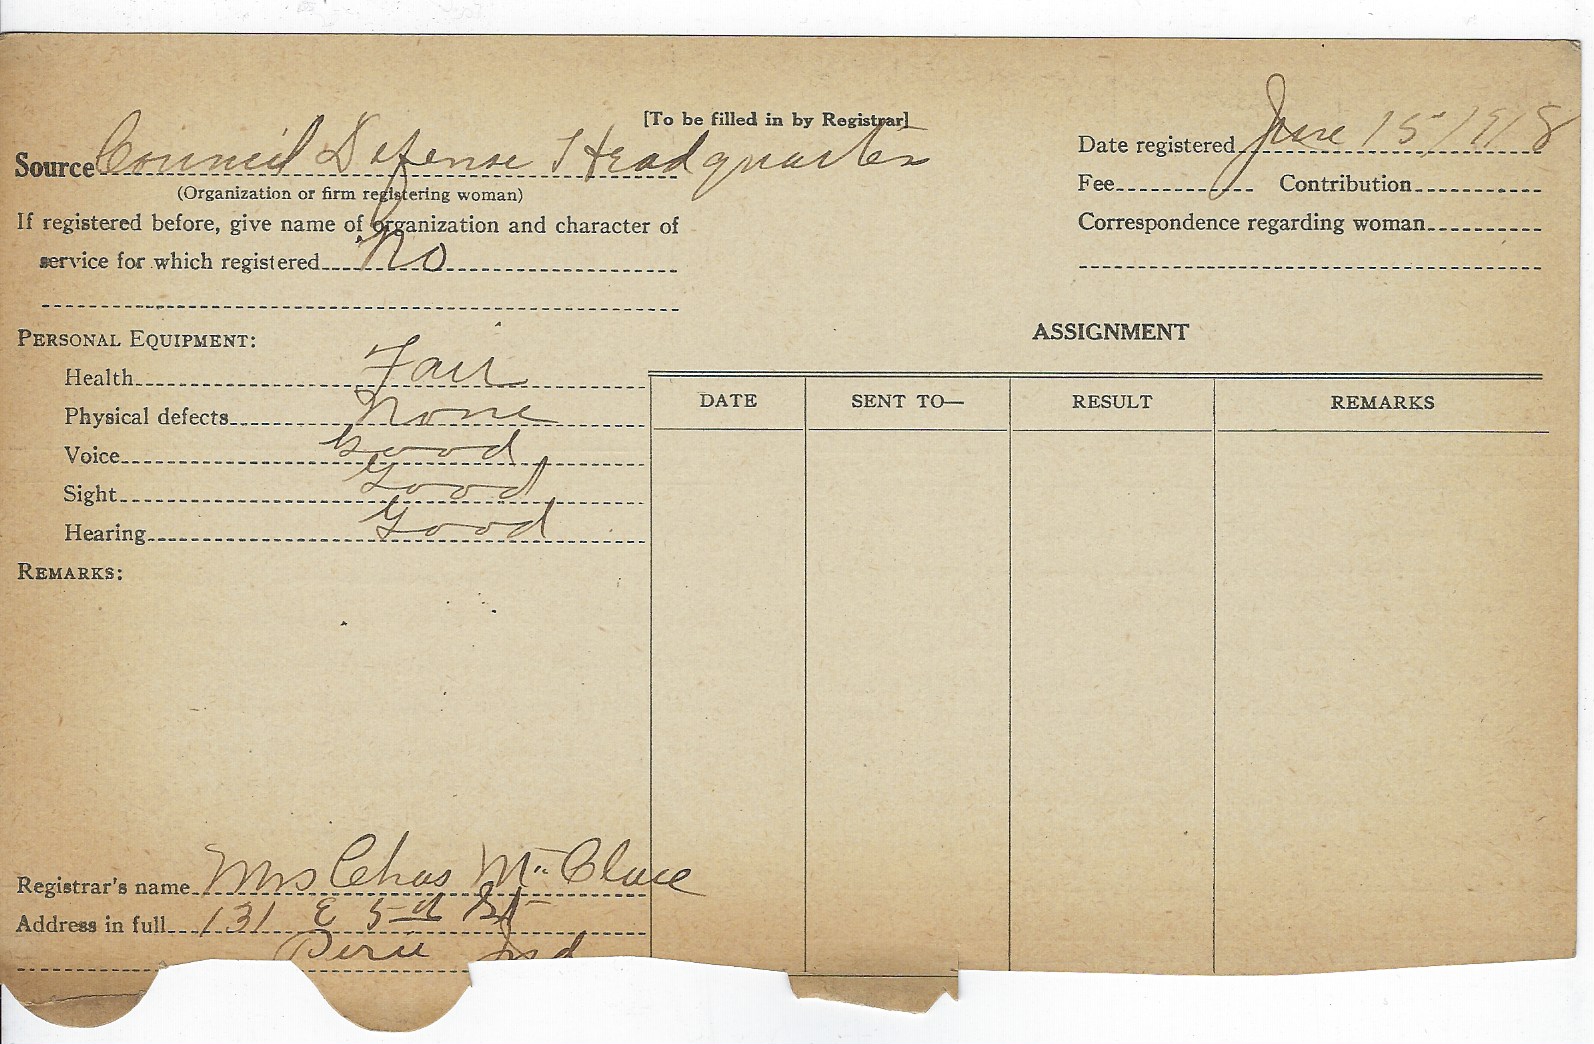 [To be filled in by Registrar]
Source Council Defense Headquarters
(Organization or firm registering woman)
If registered before, give name of organization and character of
service for which registered No
Date registered June 15/1918
Fee Contribution
Correspondence regarding woman
PERSONAL EQUIPMENT:
Health Fair
Physical defects None
Voice Good
Sight Good
Hearing Good
REMARKS:
ASSIGNMENT
DATE SENT TO— RESULT REMARKS
Registrar's name Mrs Chas Mc Clure
Address in full 131 E 5th St
Peru Ind